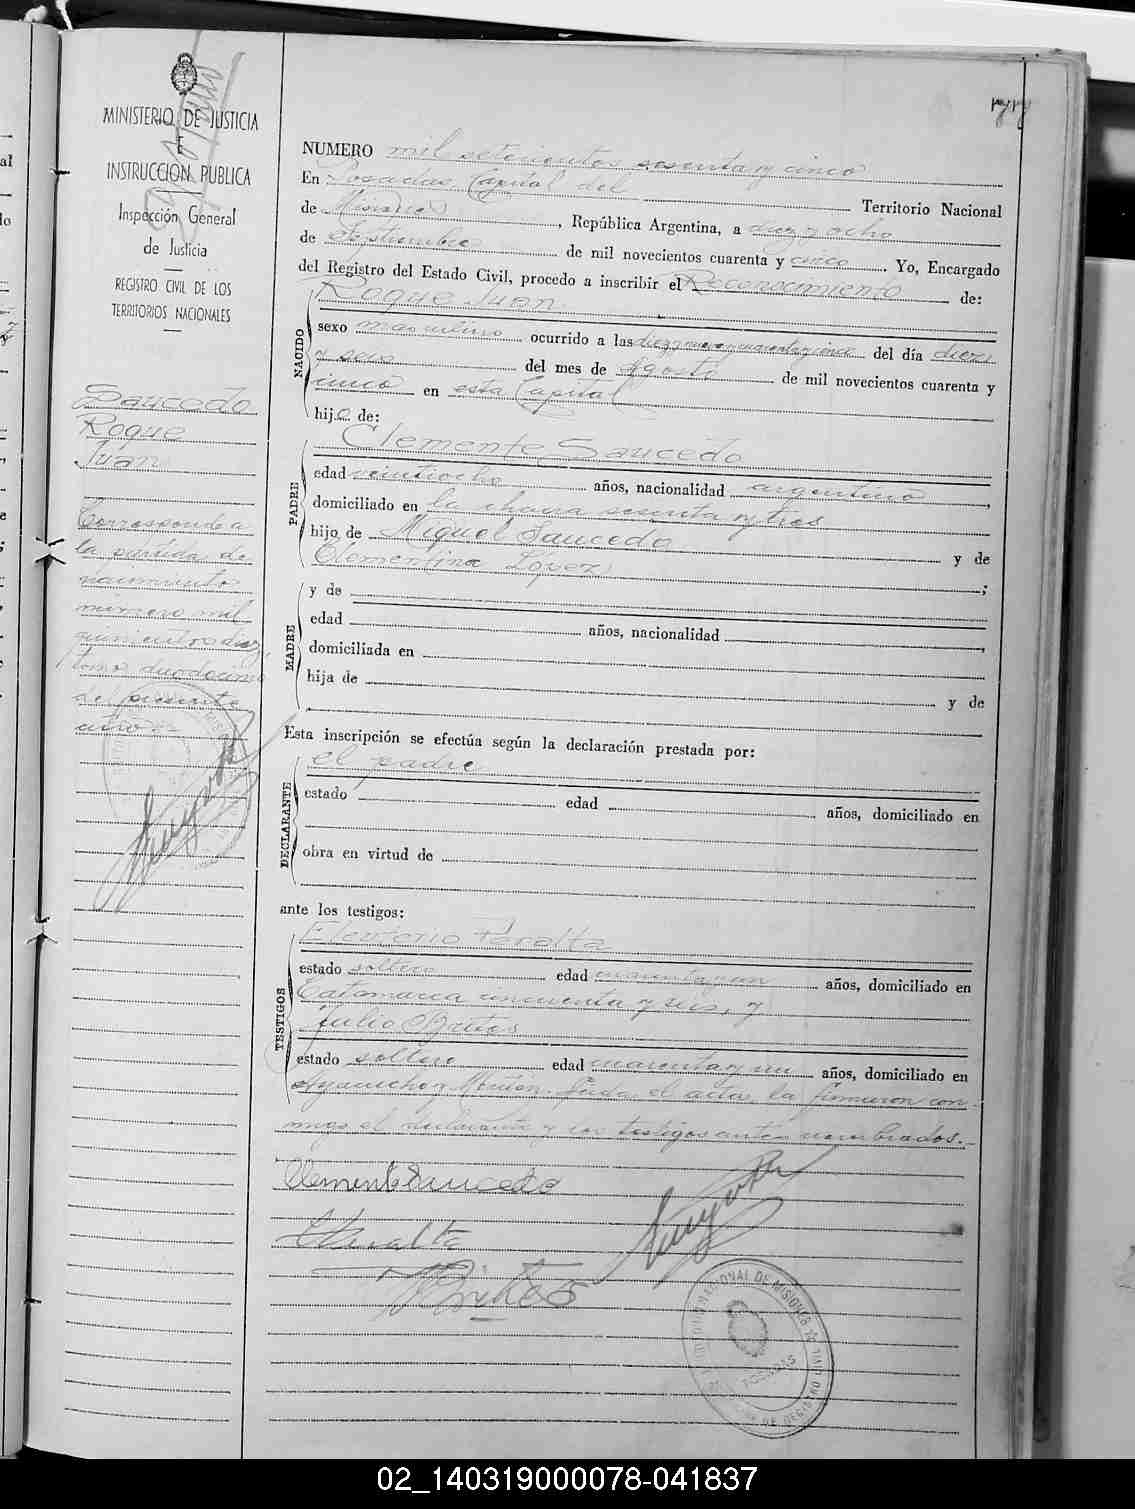 MINISTERIO DE JUSTICIA
E
INSTRUCCION PUBLICA
Inspección General
de Justicia
REGISTRO CIVIL DE LOS
TERRITORIOS NACIONALES
Saucedo
Roque
Juan
Corresponde a
la partida de
nacimiento
número mil
quinientos diez,
tomo duodécimo
del presente
año
NUMERO mil setecientos sesenta y cinco
En Posadas Capital del Territorio Nacional
de Misiones, República Argentina, a diez y ocho
de Setiembre de mil novecientos cuarenta y cinco. Yo, Encargado
del Registro del Estado Civil, procedo a inscribir el Reconocimiento de:
NACIDO
Roque Juan
sexo masculino ocurrido a las diez y nueve y cuarenta y cinco del día diez
y seis del mes de Agosto de mil novecientos cuarenta y
cinco en esta Capital
hijo de:
PADRE
Clemente Saucedo
edad veintiocho años, nacionalidad argentino,
domiciliado en la chacra sesenta y tres
hijo de Miguel Saucedo y de
Clementina López;
MADRE
y de
edad años, nacionalidad,
domiciliada en
hija de y de
Esta inscripción se efectúa según la declaración prestada por:
DECLARANTE
el padre
estado edad años, domiciliado en
obra en virtud de
ante los testigos:
TESTIGOS
Eleuterio Peralta
estado soltero edad cuarenta y un años, domiciliado en
Catamarca cincuenta y seis, y
Julio Brites
estado soltero edad cuarenta y un años, domiciliado en
Ayacucho y Leida el acta, la firmaron con-
migo el declarante y los testigos antes nombrados.
Clemente Saucedo
EPeralta
NACIONAL DE MISIONES
POSADAS
02_140319000078-041837